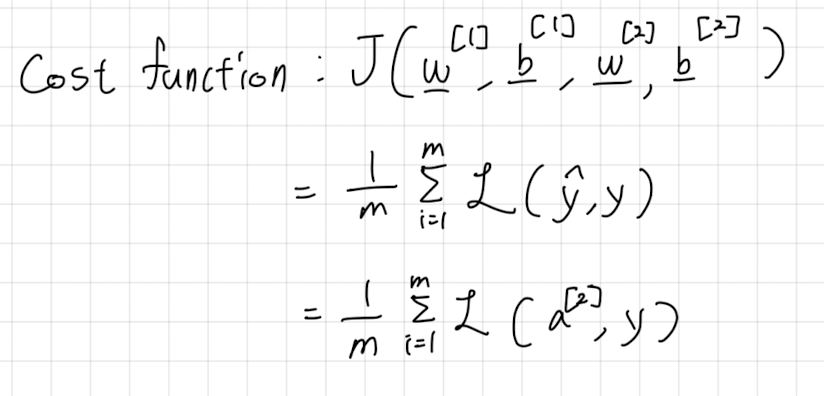 Cost function : J(w^[1], b^[1], w^[2], b^[2])
= 1/m Σ_{i=1}^{m} ℒ(ŷ, y)
= 1/m Σ_{i=1}^{m} ℒ(a^[2], y)